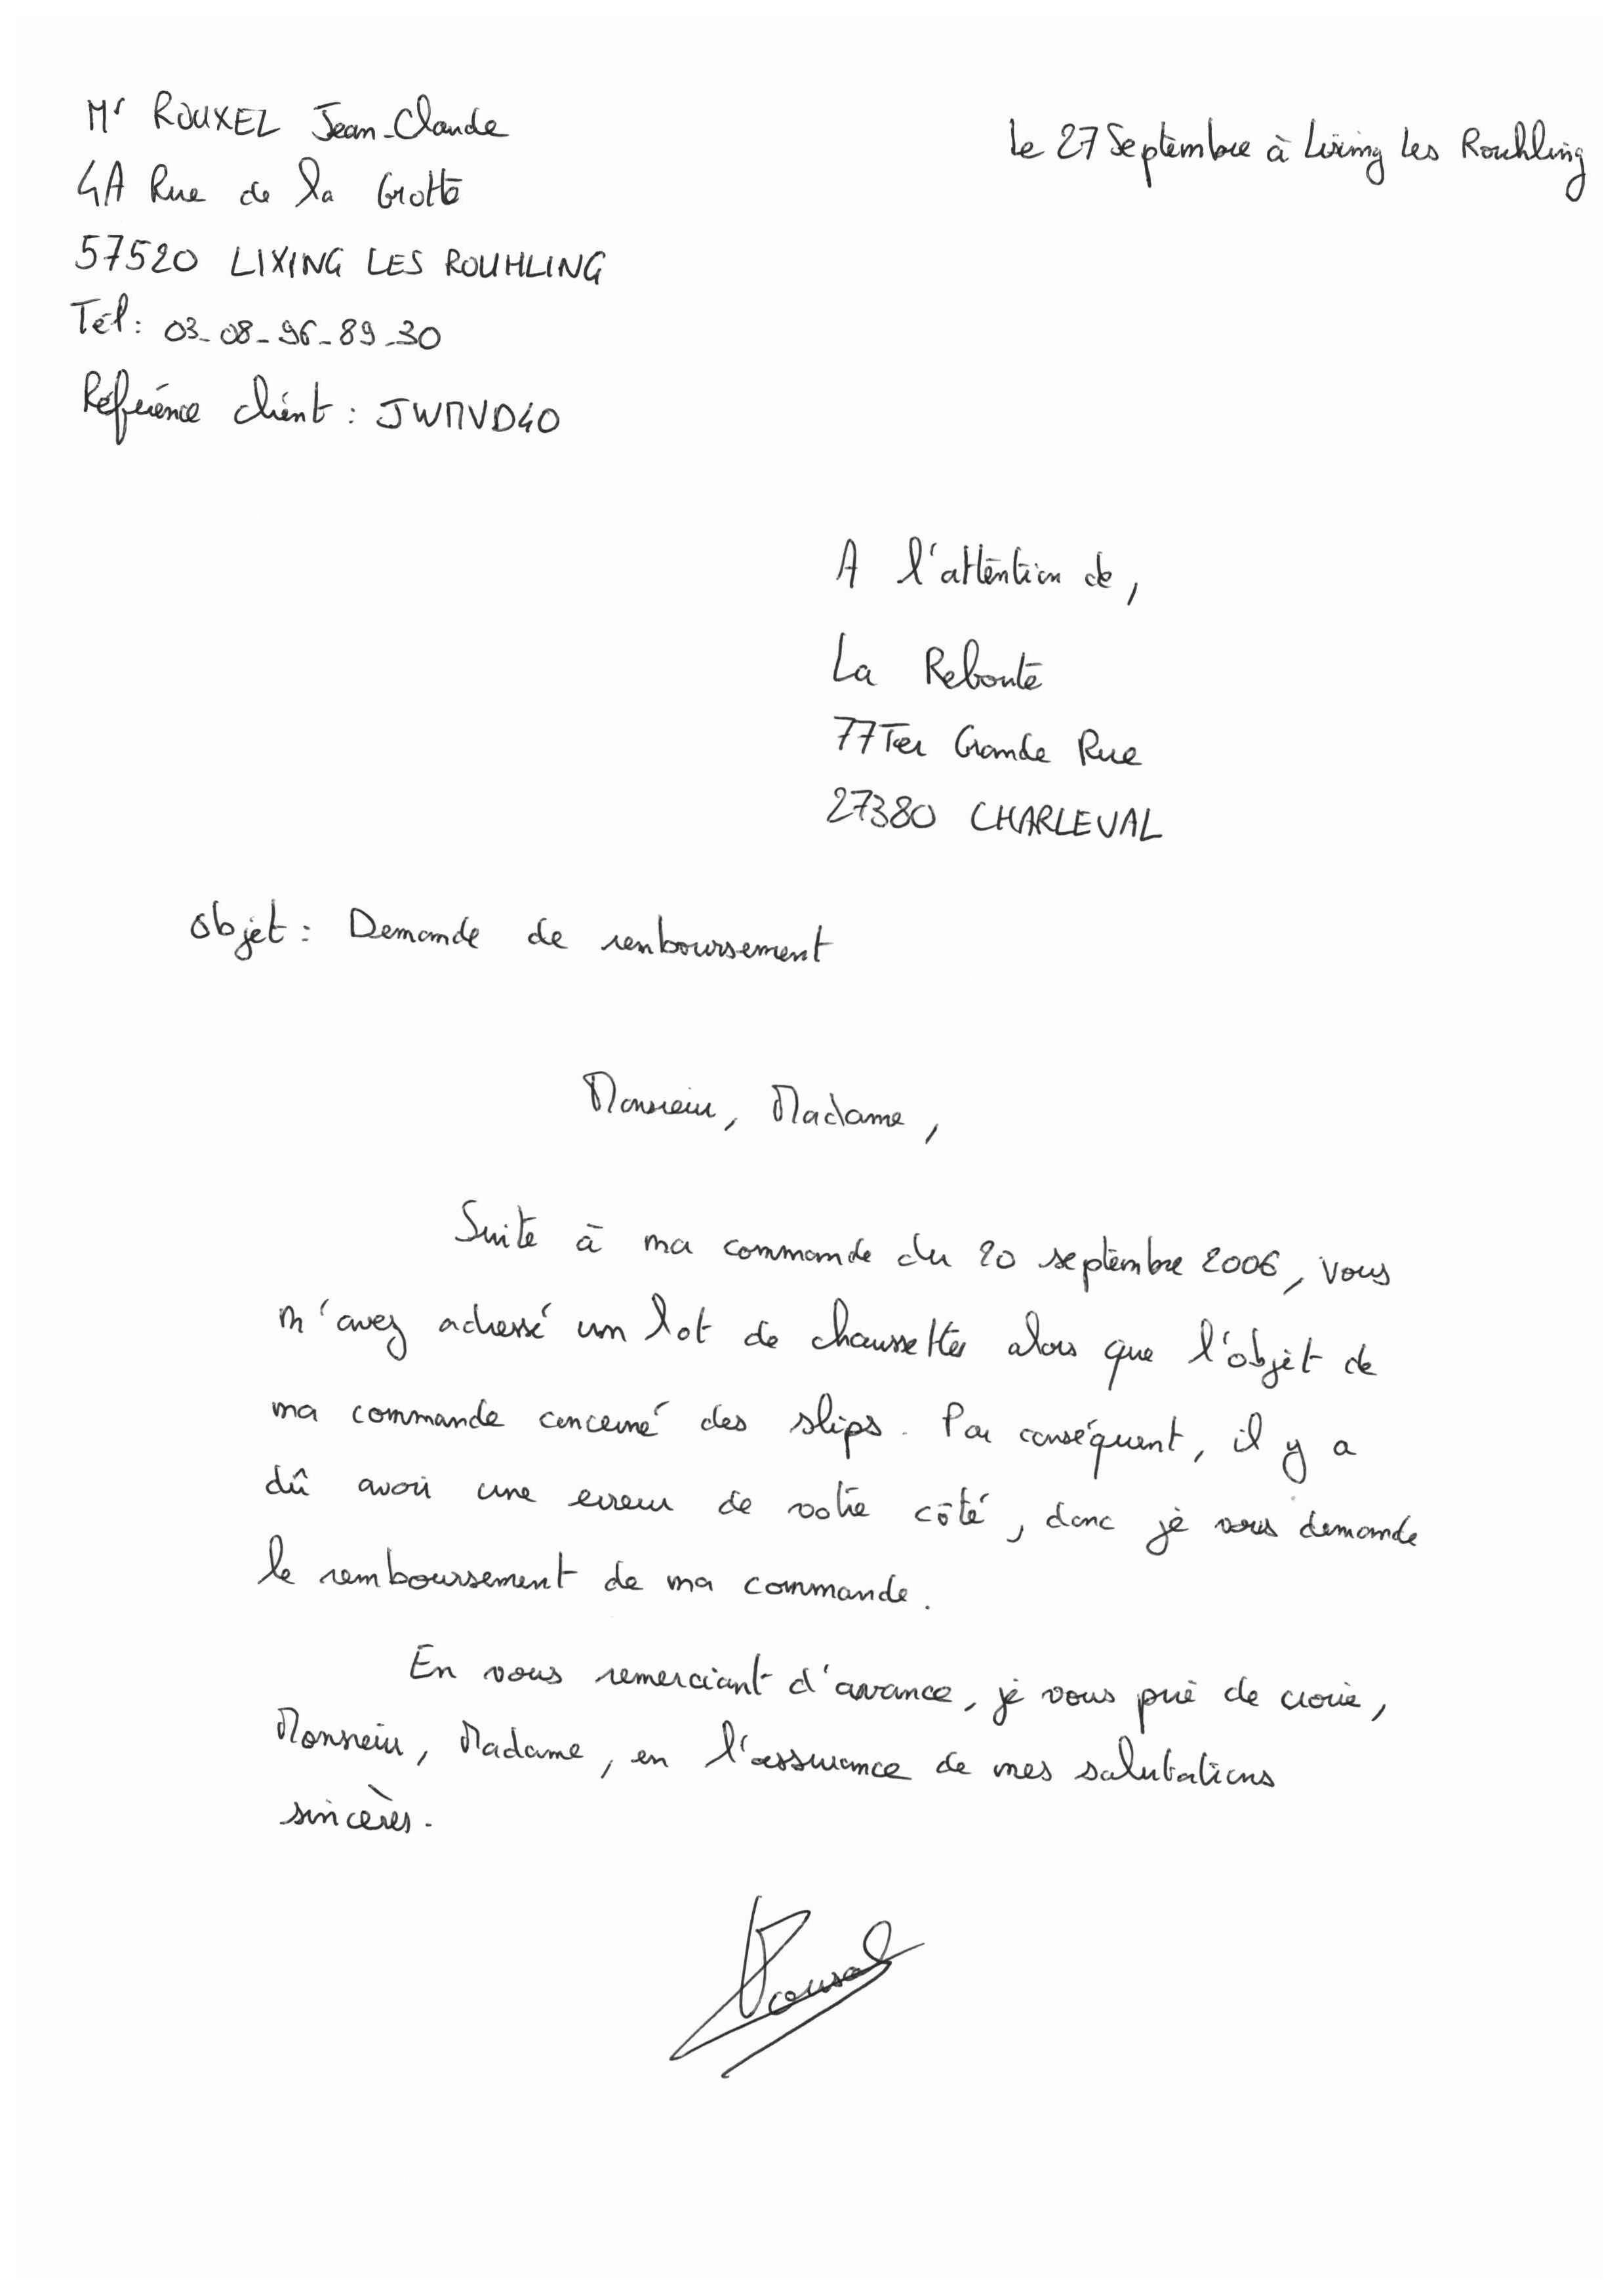 Mr ROUXEL Jean-Claude
le 27 Septembre à Lixing les Rouhling
4A Rue de la Grotte
57520 LIXING LES ROUHLING
Tél : 03-08-96-89-30
Référence client : JWMVD40
A l'attention de,
La Reboute
77Ter Grande Rue
27380 CHARLEVAL
Objet : Demande de remboursement
Monsieur, Madame,
Suite à ma commande du 20 septembre 2006, vous
m'avez adressé un lot de chaussettes alors que l'objet de
ma commande concerné des slips. Par conséquent, il y a
dû avoir une erreur de votre côté, donc je vous demande
le remboursement de ma commande.
En vous remerciant d'avance, je vous prie de croire,
Monsieur, Madame, en l'assurance de mes salutations
sincères.